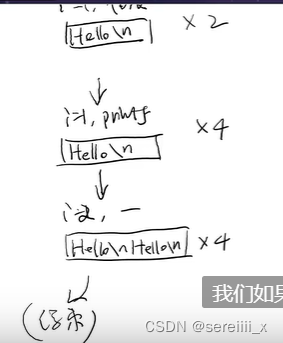 Hello\n
×2
i=1, printf
×4
Hello\n
i=2, 一
Hello\nHello\n
×4
(结束)
我们如果
CSDN @sereiiii_x